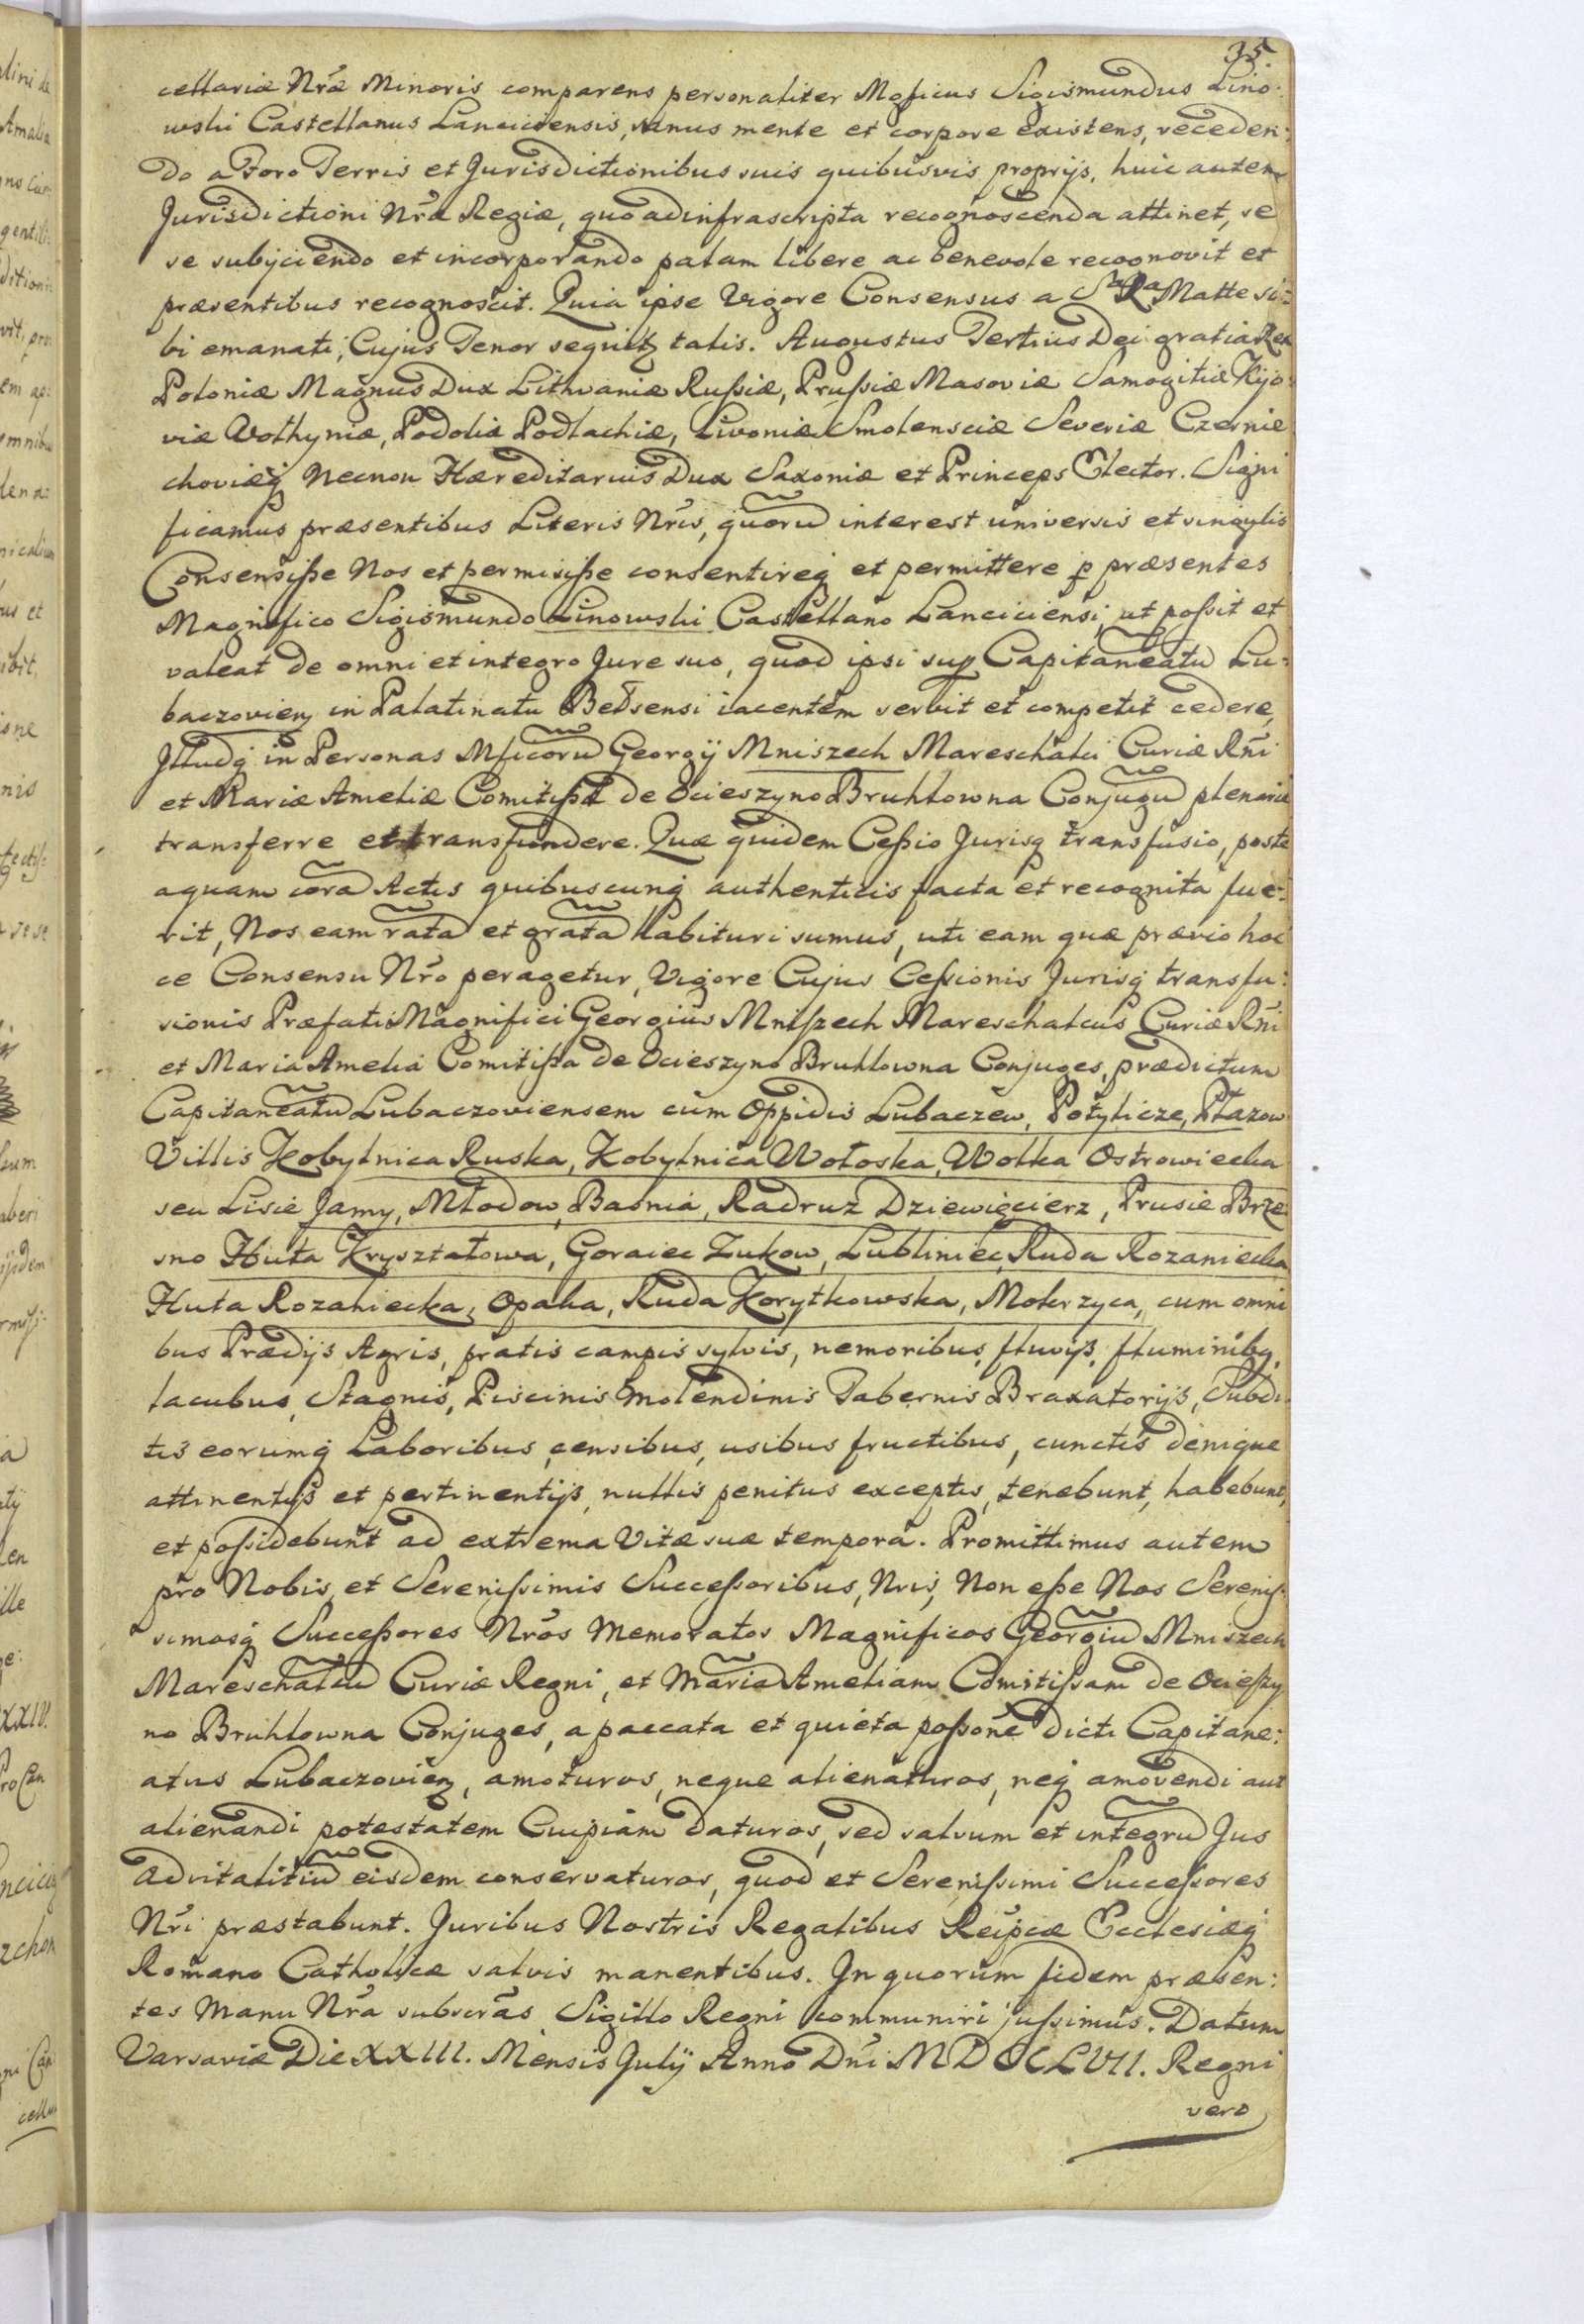 35
cellariæ Nræ Minoris comparens personaliter Mgficus Sigismundus Lino:
wski Castellanus Lanciciensis, sanus mente et corpore existens, receden:
do a Foro Terris et Jurisdictionibus suis quibusvis proprijs, huic autem
Jurisdictioni Nræ Regiæ, quo ad infrascripta recognoscenda attinet, se
se subijciendo et incorporando palam libere ac benevole recognovit et
præsentibus recognoscit. Quia ipse Vigore Consensus a Sa Ra Matte si:
bi emanati, Cujus Tenor sequitz talis. Augustus Tertius Dei gratia Rex
Poloniæ Magnus Dux Lithvaniæ Rußiæ, Prußiæ Masoviæ Samogitiæ Kijo:
viæ Volhyniæ, Podoliæ Podlachiæ, Livoniæ Smolensciæ Severiæ Czernie
choviæq Necnon Hæreditarius Dux Saxoniæ et Princeps Elector. Signi
ficamus præsentibus Literis Nris, quorũ interest universis et singulis
Consensiße Nos et permisiße consentireq et permittere p præsentes
Magnifico Sigismundo Linowski Castellano Lanciciensi, ut poßit et
valeat de omni et integro Jure suo, quod ipsi sup Capitaneatũ Lu:
baczovien in Palatinatu Belsensi iacentem servit et competit cedere,
Jlludq in Personas Mficorũ Georgij Mniszech Mareschalci Curiæ Rni
et Mariæ Ameliæ Comitißæ de Ocieszyno Bruhlowna Conjugũ plenarie
transferre et transfundere. Quæ quidem Ceßio Jurisq transfusio, poste
aquam corã Actis quibuscunq authenticis facta et recognita fue:
rit, Nos eam ratã et gratã habituri sumus, uti eam quæ prævio hoc
ce Consensu Nro peragetur, Vigore Cujus Ceßionis Jurisq transfu:
sionis Præfati Magnifici Georgius Mniszech Mareschalcus Curiæ Rni
et Maria Amelia Comitißa de Ocieszyno Bruhlowna Conjuges, prædictum
Capitaneatũ Lubaczoviensem cum Oppidis Lubaczew, Potylicze, Płazow
Villis Kobylnica Ruska, Kobylnica Wołoska, Wolka Ostrowiecka
seu Lisie Jamy, Młodow, Basnia, Radruż Dziewięcierz, Prusie Brze
sno Huta Kryształowa, Goraiec Zukow, Lubliniec, Ruda Rozaniecka
Huta Rozaniecka, Opaka, Ruda Korytkowska, Mokrzyca, cum omni
bus Prædijs Agris, pratis campis sylvis, nemoribus, fluvijs, fluminibq,
lacubus, Stagnis, Piscinis Molendinis Tabernis Braxatorijs, Subdi
tis eorumq Laboribus, censibus, usibus fructibus, cunctis denique
attinentijs et pertinentijs, nullis penitus exceptis, tenebunt, habebunt,
et poßidebunt ad extrema Vitæ suæ tempora. Promittimus autem
pro Nobis, et Serenißimis Succeßoribus, Nris, Non eße Nos Sereniß
simosq Succeßores Nros Memoratos Magnificos Georgiũ Mniszech
Mareschalcũ Curiæ Regni, et Mariã Ameliam Comitißam de Ocieszy
no Bruhlowna Conjuges, a paccata et quieta poßone dicti Capitane:
atus Lubaczovien, amoturos, neque alienaturos, neq amovendi aut
alienandi potestatem Cuipiam daturos, sed salvum et integrũ Jus
advitalitiũ eisdem conservaturos, quod et Serenißimi Succeßores
Nri præstabunt. Juribus Nostris Regalibus Reipcæ Ecclesiæq
Romano Catholicæ salvis manentibus. Jn quorum fidem præsen:
tes Manu Nra subscras, Sigillo Regni communiri jußimus. Datum
Varsaviæ Die XXIII. Mensis Julij Anno Dni MDCCLVII. Regni
vero